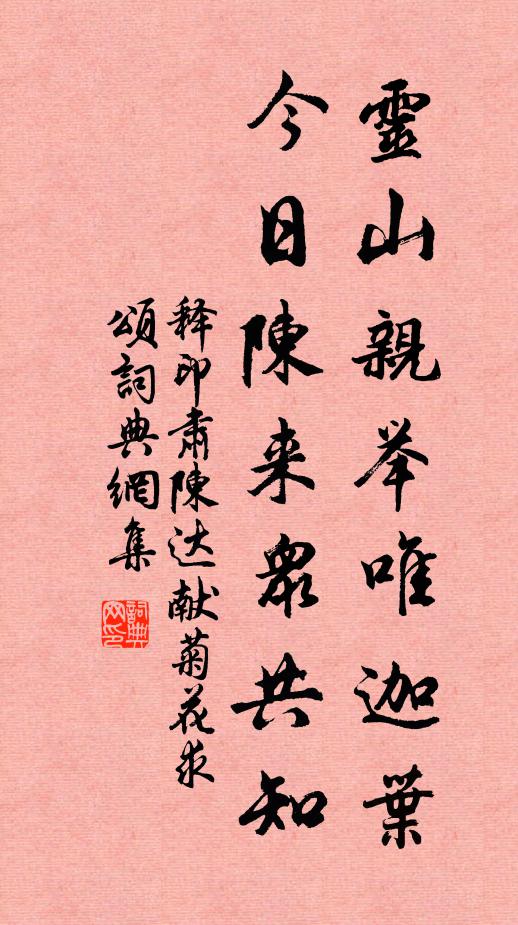 靈山親举唯迦葉
今日陳来眾共知
释印肃陳达献菊花求
頌詞典網集
詞典网印